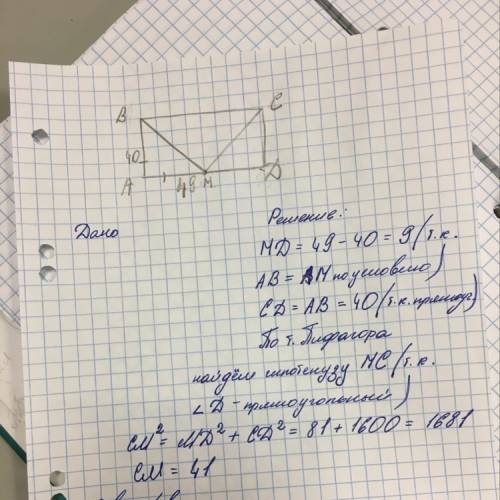 B
C
40
A
49
M
D
Дано
Решение:
MD = 49 - 40 = 9 (т.к.
AB = AM по условию)
CD = AB = 40 (т.к. прямоуг)
По т. Пифагора
найдём гипотенузу MC (т.к.
∠D - прямоугольный)
CM² = MD² + CD² = 81 + 1600 = 1681
CM = 41